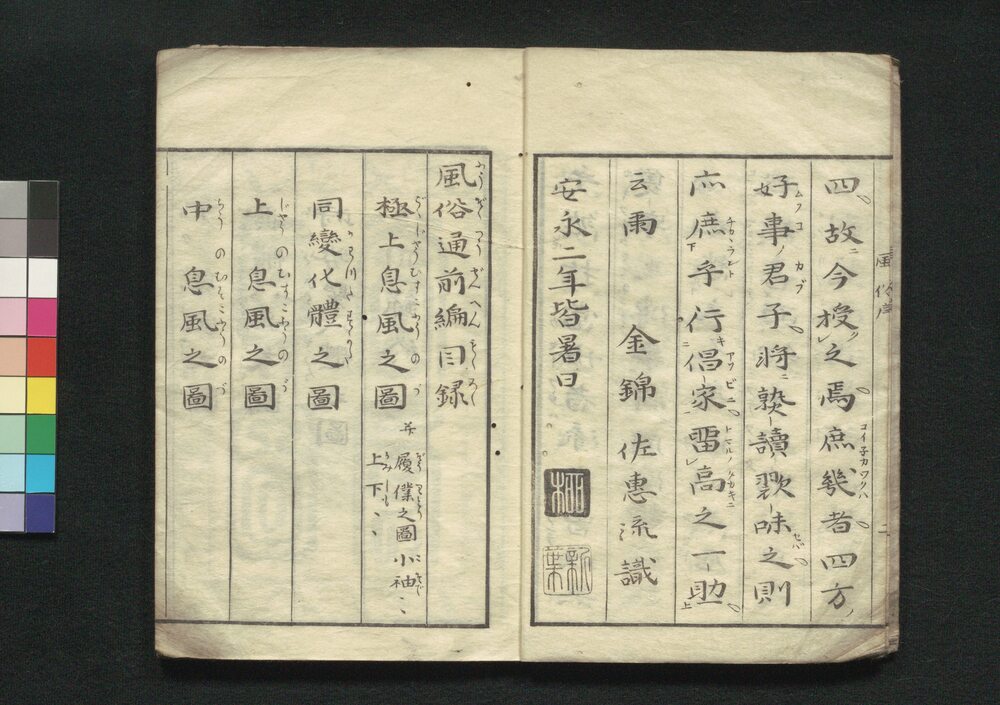 四故今授之焉庶幾者四方
好事君子將熟讀翫味之則
亦庶乎行倡家留高之一助
云爾 金錦佐惠流識
安永二年皆暑日
風俗通前編目録
極上息風之圖 并 履僕之圖 小袖〻 上下〻
同變化體之圖
上息風之圖
中息風之圖